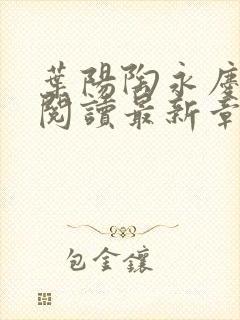 葉陽陶永慶
閱讀最新章
包金鑲